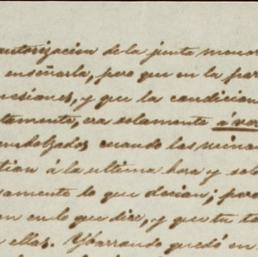 autorizacion de la junta menor
enseñarla, pero que en la par
nesiones, y que la condicion
tamente, era solamente á ver
endolzados cuando las reinas
tian á la ultima hora y sol
samente lo que decian; pero
en lo que dice, y que tu
ellas. Ybarrando quedó en